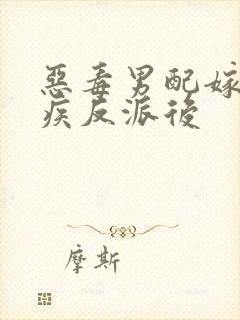 惡毒男配嫁
疾反派後
摩斯